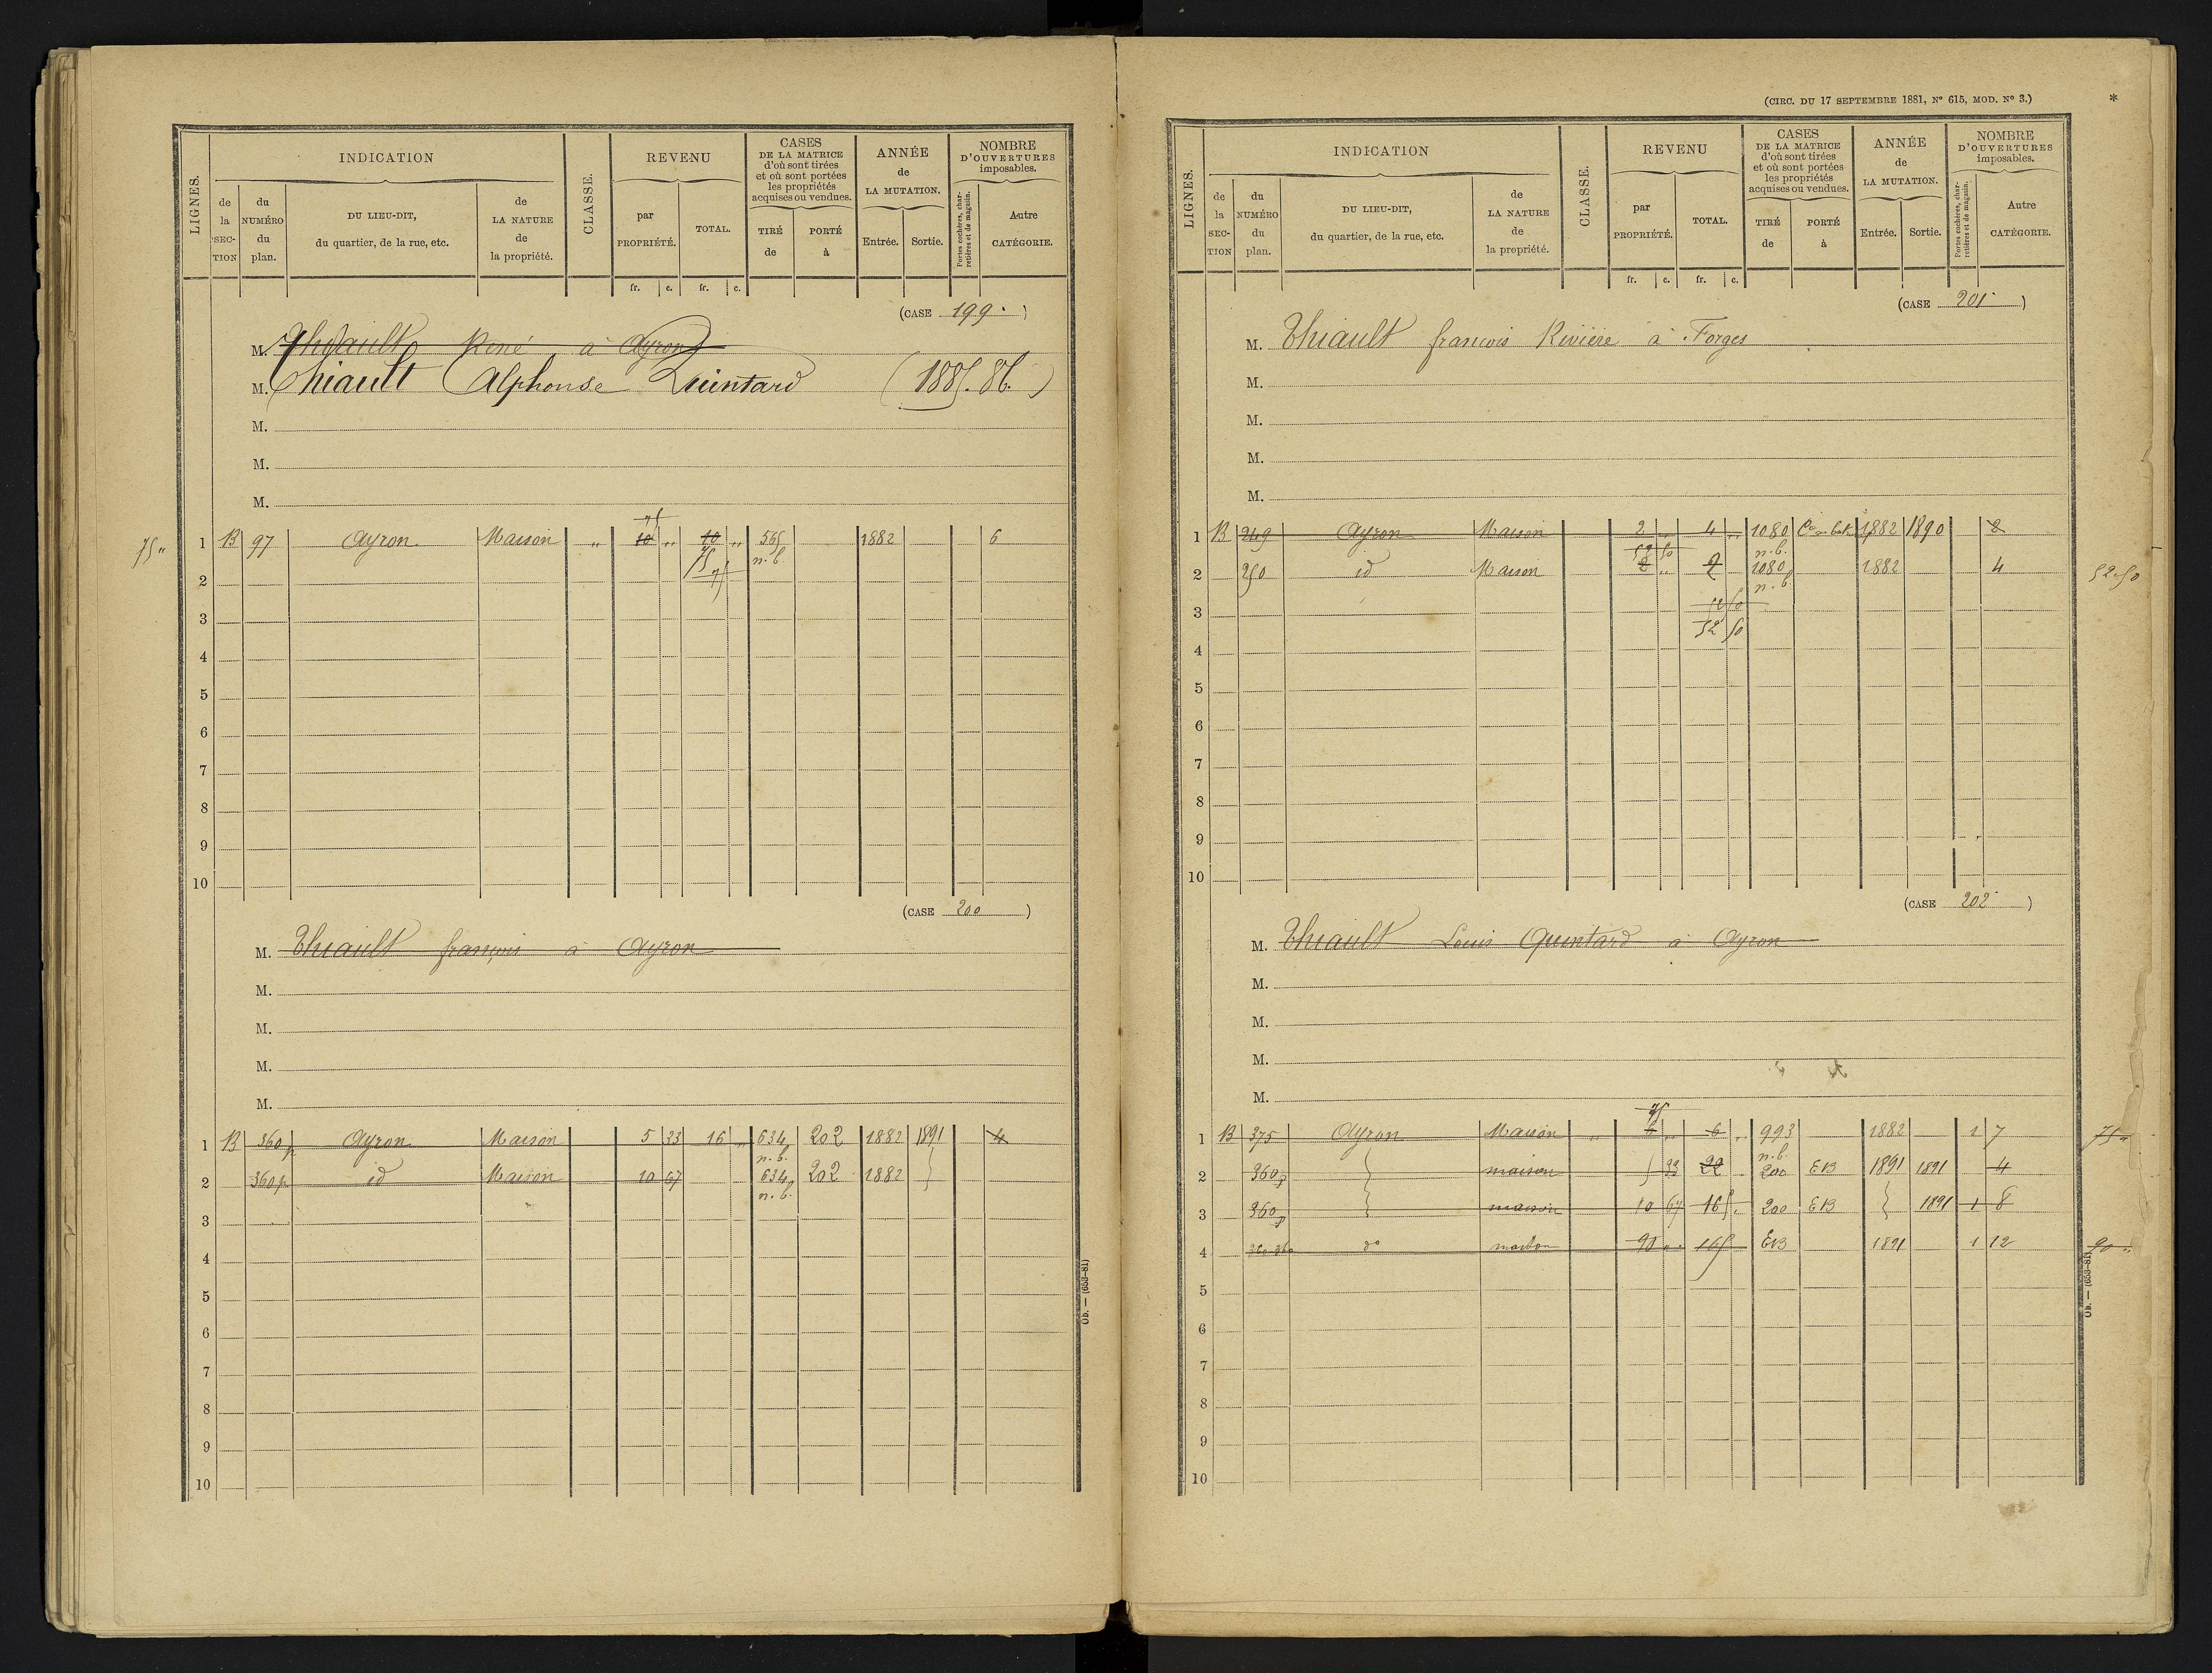 LIGNES.
INDICATION
de la SECTION
du NUMÉRO du plan.
DU LIEU-DIT, du quartier, de la rue, etc.
de LA NATURE de la propriété.
CLASSE.
REVENU
par PROPRIÉTÉ.
TOTAL.
CASES DE LA MATRICE d'où sont tirées et où sont portées les propriétés acquises ou vendues.
TIRÉ de
PORTÉ à
ANNÉE de LA MUTATION.
Entrée. Sortie.
NOMBRE D'OUVERTURES imposables.
Portes cochères, charretières et de magasin.
Autre CATÉGORIE.
fr. c. fr. c.
(CASE 199.)
M. Thiault René à Ayron
M. Thiault Alphonse Quintard (1885.86.)
M.
M.
M.
75
75 " 1 B 97 Ayron Maison " 10 " 10 " 565 1882 6
75 n.b.
2
3
4
5
6
7
8
9
10
(CASE 200)
M. Thiault françois à Ayron
M.
M.
M.
M.
1 B 360p Ayron Maison 5 33 16 " 634 202 1882 1891 4
n.b.
2 360p id Maison 10 67 634 202 1882
n.b.
3
4
5
6
7
8
9
10
Ob. — (653-81)
(CIRC. DU 17 SEPTEMBRE 1881, N° 615, MOD. N° 3.) *
LIGNES.
INDICATION
de la SECTION
du NUMÉRO du plan.
DU LIEU-DIT, du quartier, de la rue, etc.
de LA NATURE de la propriété.
CLASSE.
REVENU
par PROPRIÉTÉ.
TOTAL.
CASES DE LA MATRICE d'où sont tirées et où sont portées les propriétés acquises ou vendues.
TIRÉ de
PORTÉ à
ANNÉE de LA MUTATION.
Entrée. Sortie.
NOMBRE D'OUVERTURES imposables.
Portes cochères, charretières et de magasin.
Autre CATÉGORIE.
fr. c. fr. c.
(CASE 201)
M. Thiault francois Rivière à Forges
M.
M.
M.
M.
1 B 249 Ayron Maison 2 " 4 " 1080 1882 1890 2
52 50 n.b.
2 250 id Maison 2 " 2 1080 1882 4 52.50
n.b.
3 52 50
52 50
4
5
6
7
8
9
10
(CASE 202)
M. Thiault Louis Quintard à Ayron
M.
M.
M.
M.
75
1 B 375 Ayron Maison " 6 " 6 " 993 1882 1 7 75 "
n.b.
2 360p maison 5 33 22 200 EB 1891 1891 4
3 360p maison 10 67 165 . 200 EB 1891 1 8
4 d° maison 90 " 165 EB 1891 1 12 90 "
5
6
7
8
9
10
Ob. — (653-81)